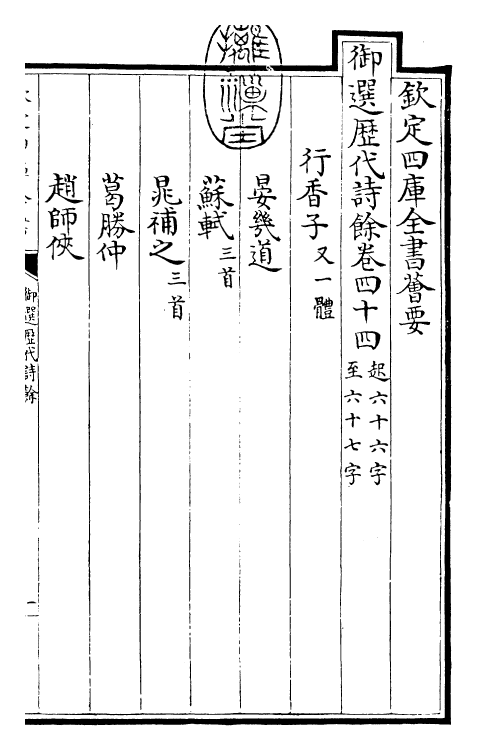 欽定四庫全書薈要
御選歴代詩餘卷四十四 起六十六字
至六十七字
行香子 又一體
晏幾道
蘇軾 三首
晁補之 三首
葛勝仲
趙師俠
御選歴代詩餘